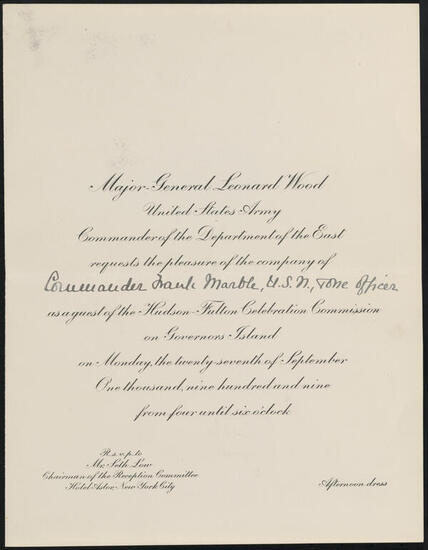 Major-General Leonard Wood
United States Army
Commander of the Department of the East
requests the pleasure of the company of
Commander Frank Marble, U.S.N., & one officer
as a guest of the Hudson-Fulton Celebration Commission
on Governors Island
on Monday, the twenty-seventh of September
One thousand, nine hundred and nine
from four until six o'clock
R.s.v.p. to
Mr. Seth Low
Chairman of the Reception Committee
Hotel Astor, New York City
Afternoon dress